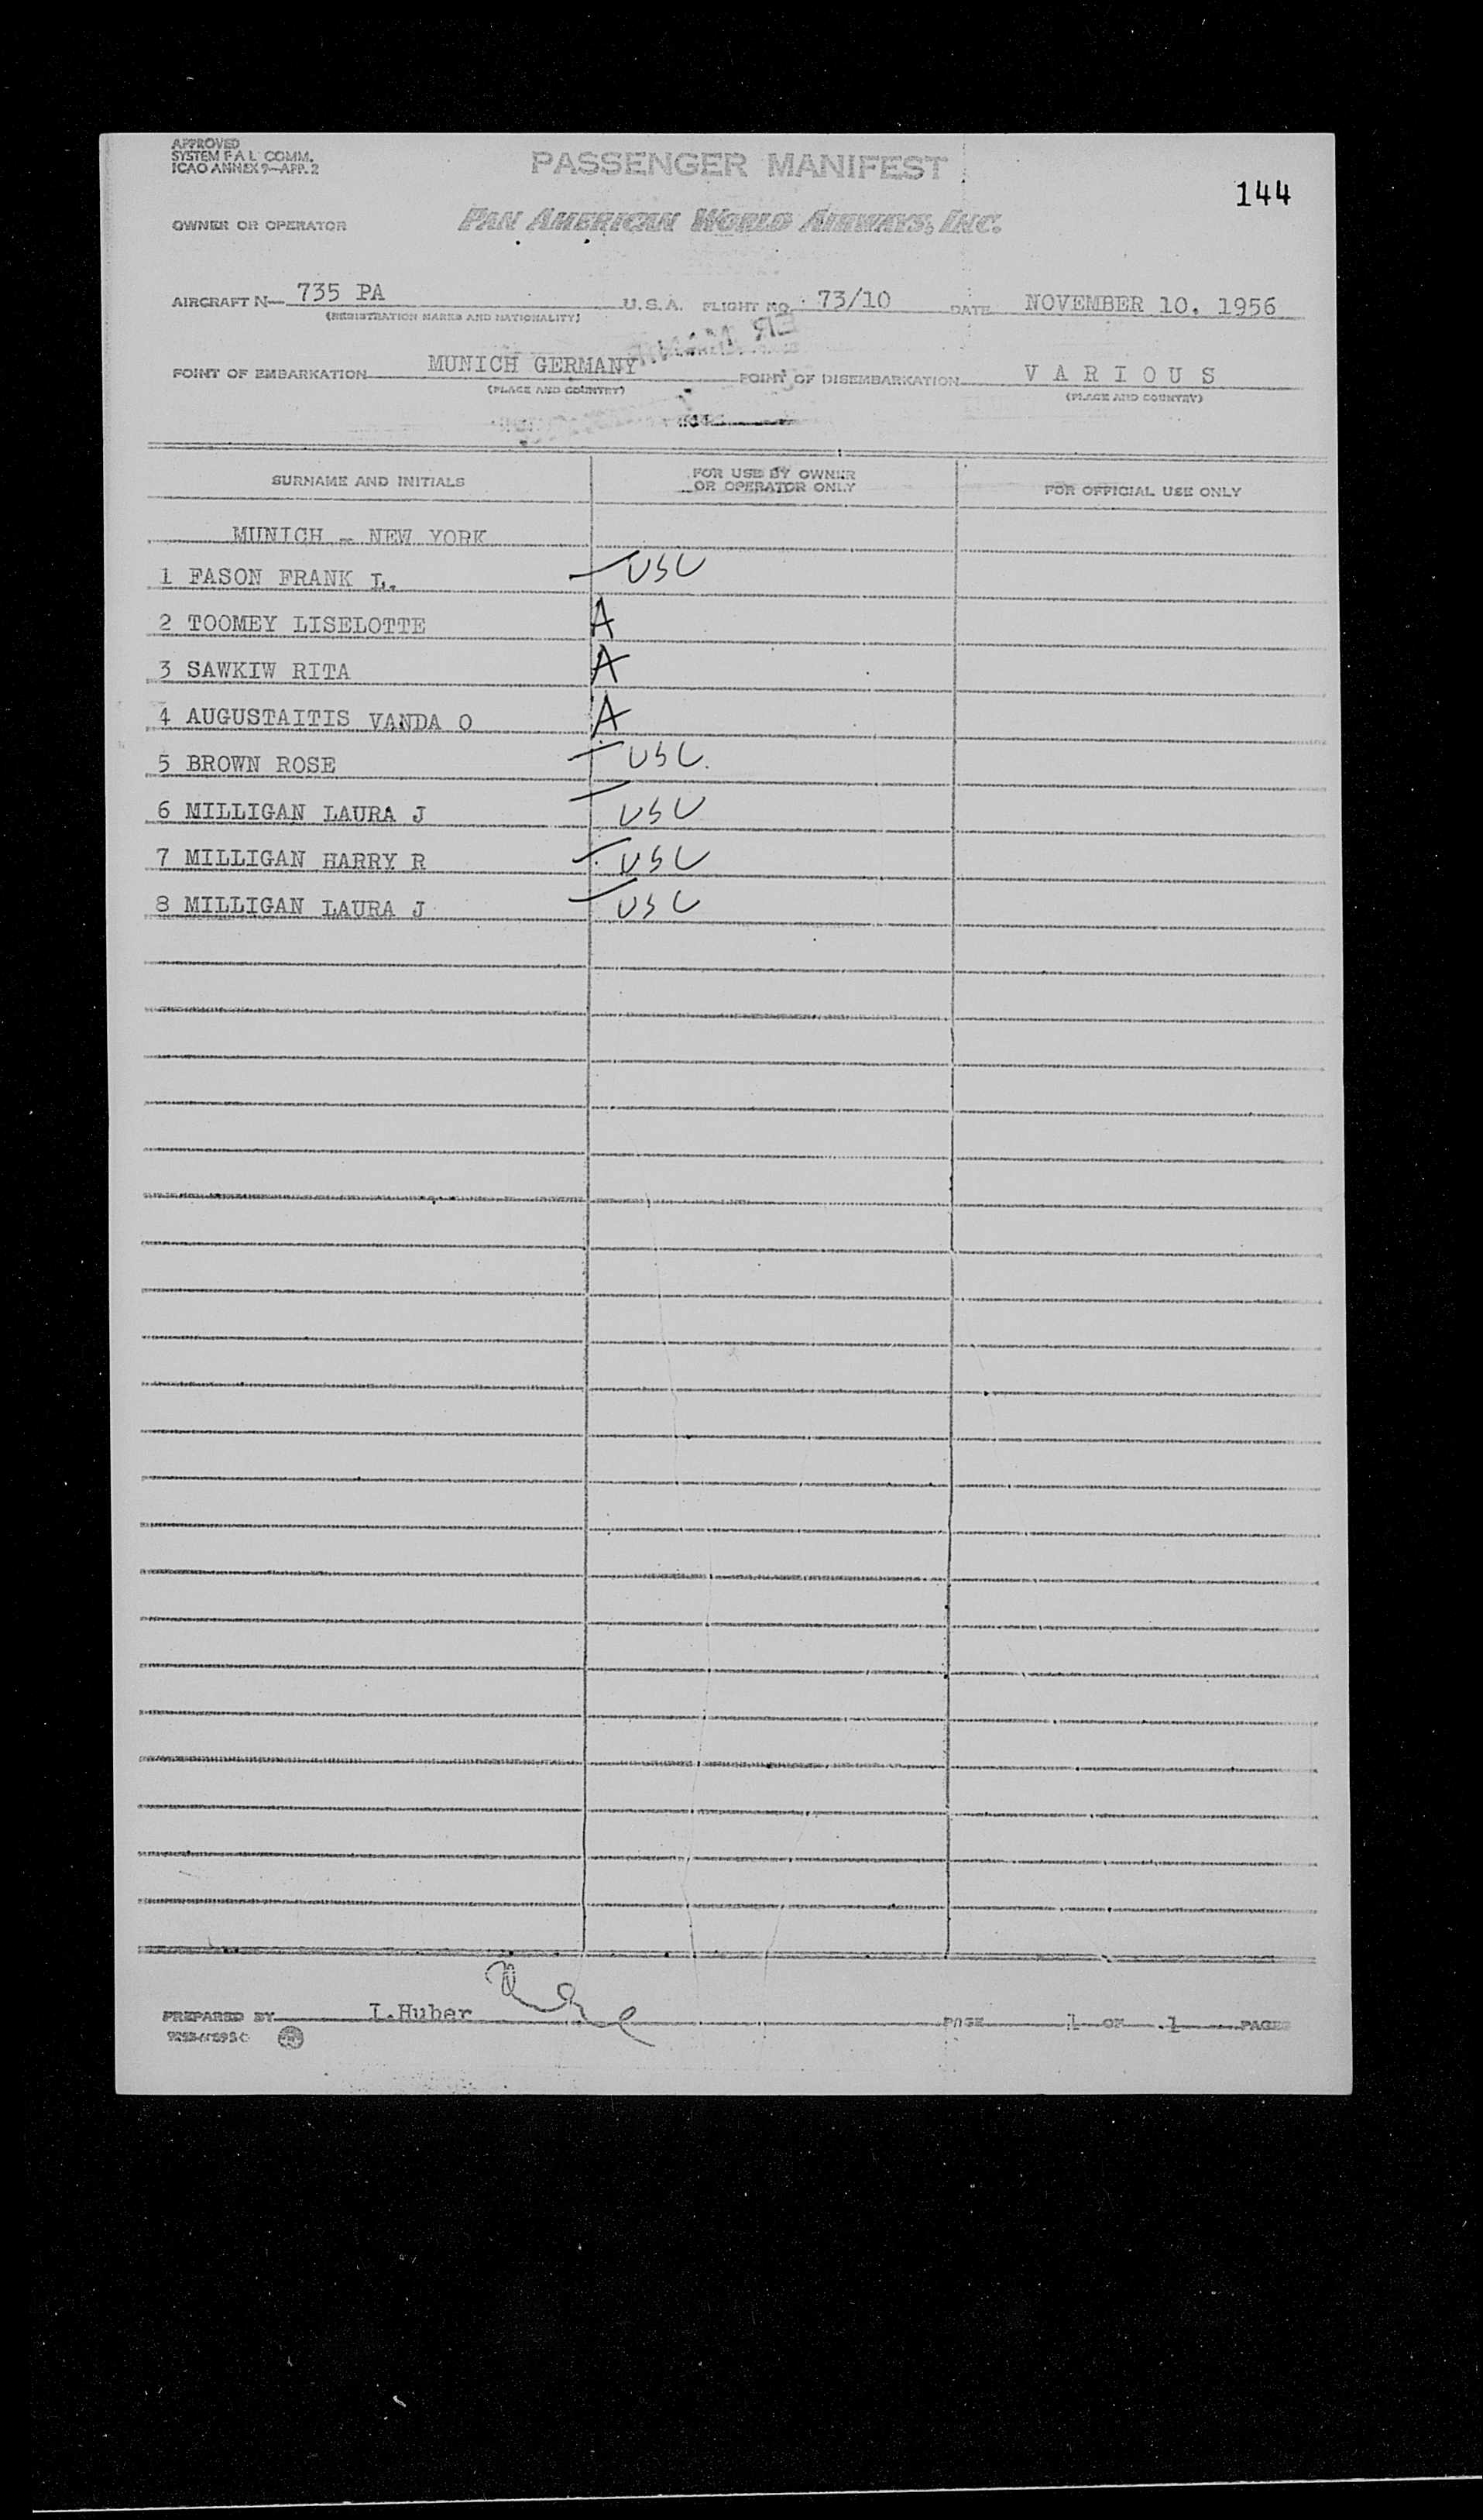 APPROVED
SYSTEM F A L COMM.
ICAO ANNEX 9—APP. 2
PASSENGER MANIFEST
144
OWNER OR OPERATOR PAN AMERICAN WORLD AIRWAYS, INC.
AIRCRAFT N— 735 PA U.S.A. FLIGHT NO. 73/10 DATE NOVEMBER 10, 1956
(REGISTRATION MARKS AND NATIONALITY)
POINT OF EMBARKATION MUNICH GERMANY POINT OF DISEMBARKATION V A R I O U S
(PLACE AND COUNTRY) (PLACE AND COUNTRY)
SURNAME AND INITIALS FOR USE BY OWNER OR OPERATOR ONLY FOR OFFICIAL USE ONLY
MUNICH - NEW YORK
1 FASON FRANK L. USC
2 TOOMEY LISELOTTE A
3 SAWKIW RITA A
4 AUGUSTAITIS VANDA O A
5 BROWN ROSE USC.
6 MILLIGAN LAURA J USC
7 MILLIGAN HARRY R USC
8 MILLIGAN LAURA J USC
PREPARED BY I.Huber PAGE 1 OF 1 PAGES